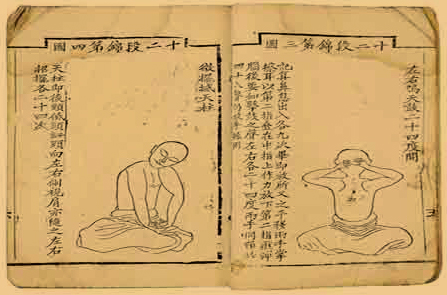 十二段錦第三圖
左右鳴天鼓二十四度聞
記算鼻息出入各九次畢即放所叉之手移兩手掌
擦耳以第二指疊在中指上作力放下第二指重彈
腦後要如擊鼓之聲左右各二十四度兩手同彈共
四十八聲仍放手握固
十二段錦第四圖
微擺撼天柱
天柱即後頸低頭扭頸向左右側視肩亦隨之左右
招擺各二十四次